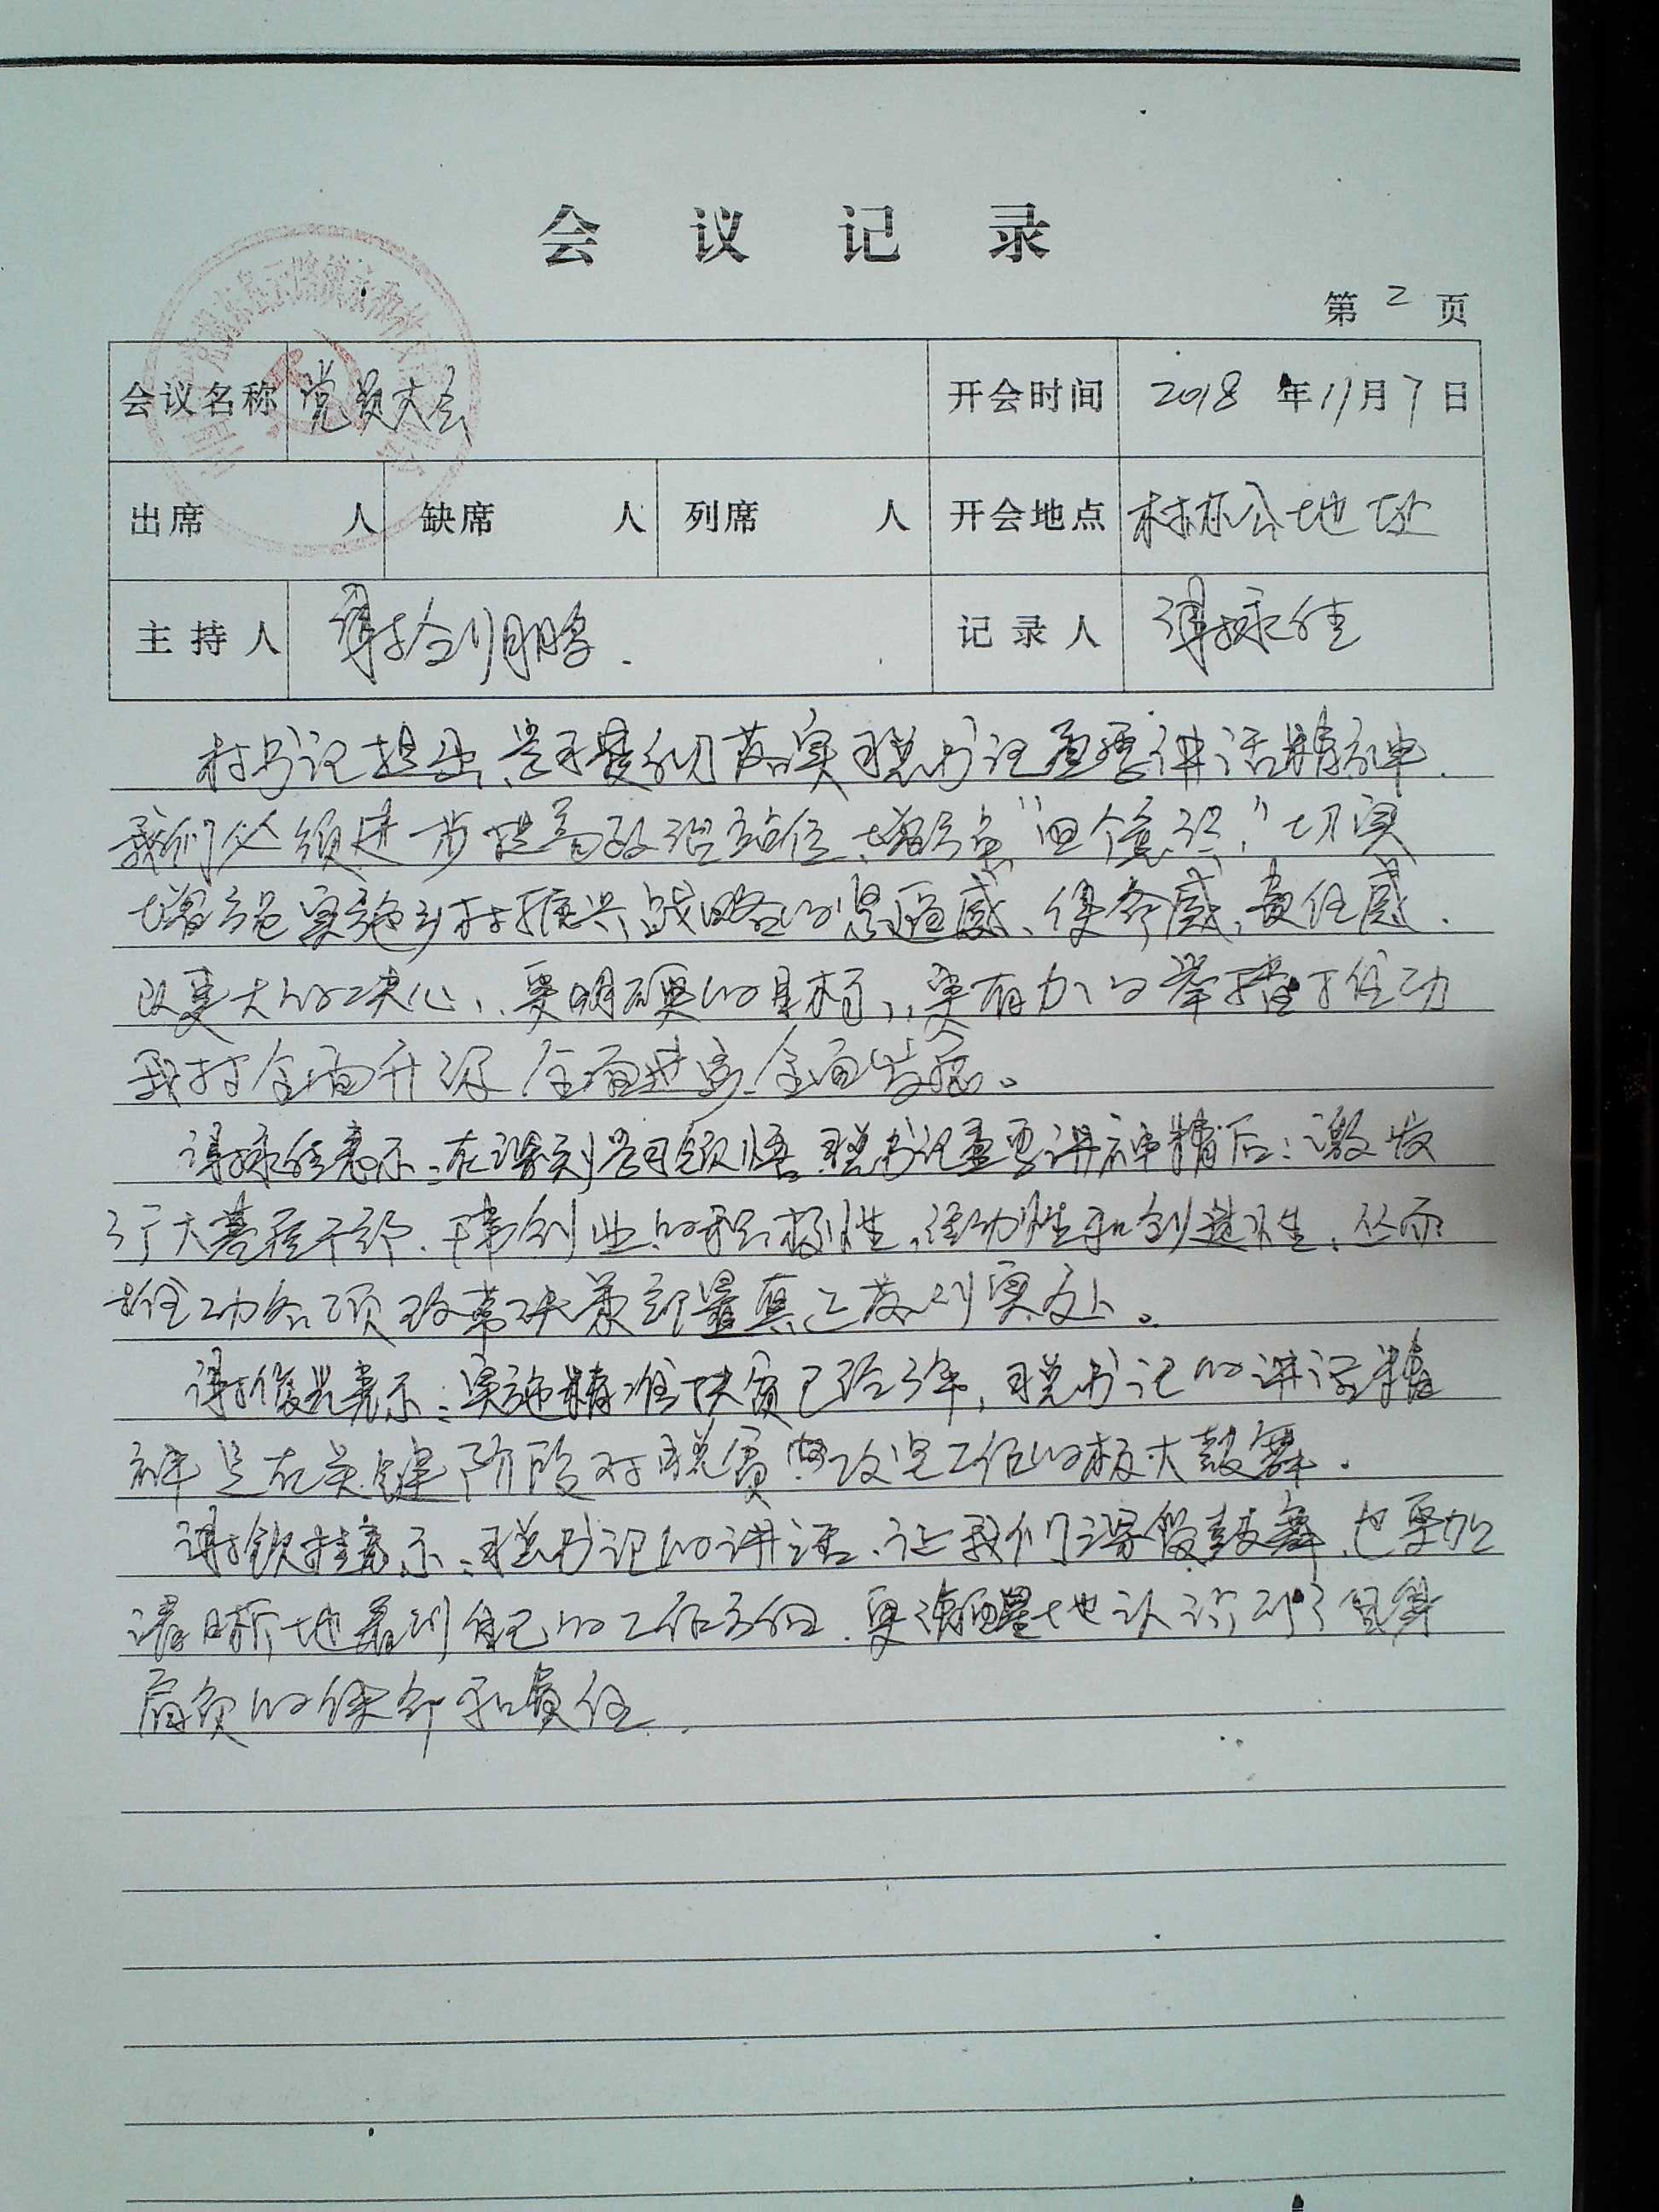 会议记录
第 2 页
会议名称 党员大会 开会时间 2018 年 11 月 7 日
出席 人 缺席 人 列席 人 开会地点 村办公地址
主持人 谢 记录人 谢
村书记提出、学习贯彻落实习总书记重要讲话精神.
我们必须进一步提高政治站位、增强“四个意识,”切实
增强实施乡村振兴战略的紧迫感、使命感、责任感.
以更大的决心、更明确的目标、更有力的举措推动
我村全面升级 全面进步 全面发展。
谢表示:在深刻学习领悟 习总书记重要讲神精后:激发
了广大基层干部、干事创业的积极性,主动性和创造性、从而
推动各项改革决策部署真正落到实处。
谢俊表示:实施精准扶贫已经3年,习总书记的讲话精
神是在关键阶段对脱贫攻坚工作的极大鼓舞.
谢钦表示、习总书记的讲话、让我们深假鼓舞、也更加
清晰地看到自己的工作方向. 更清醒地认识到了自身
肩负的使命和责任.